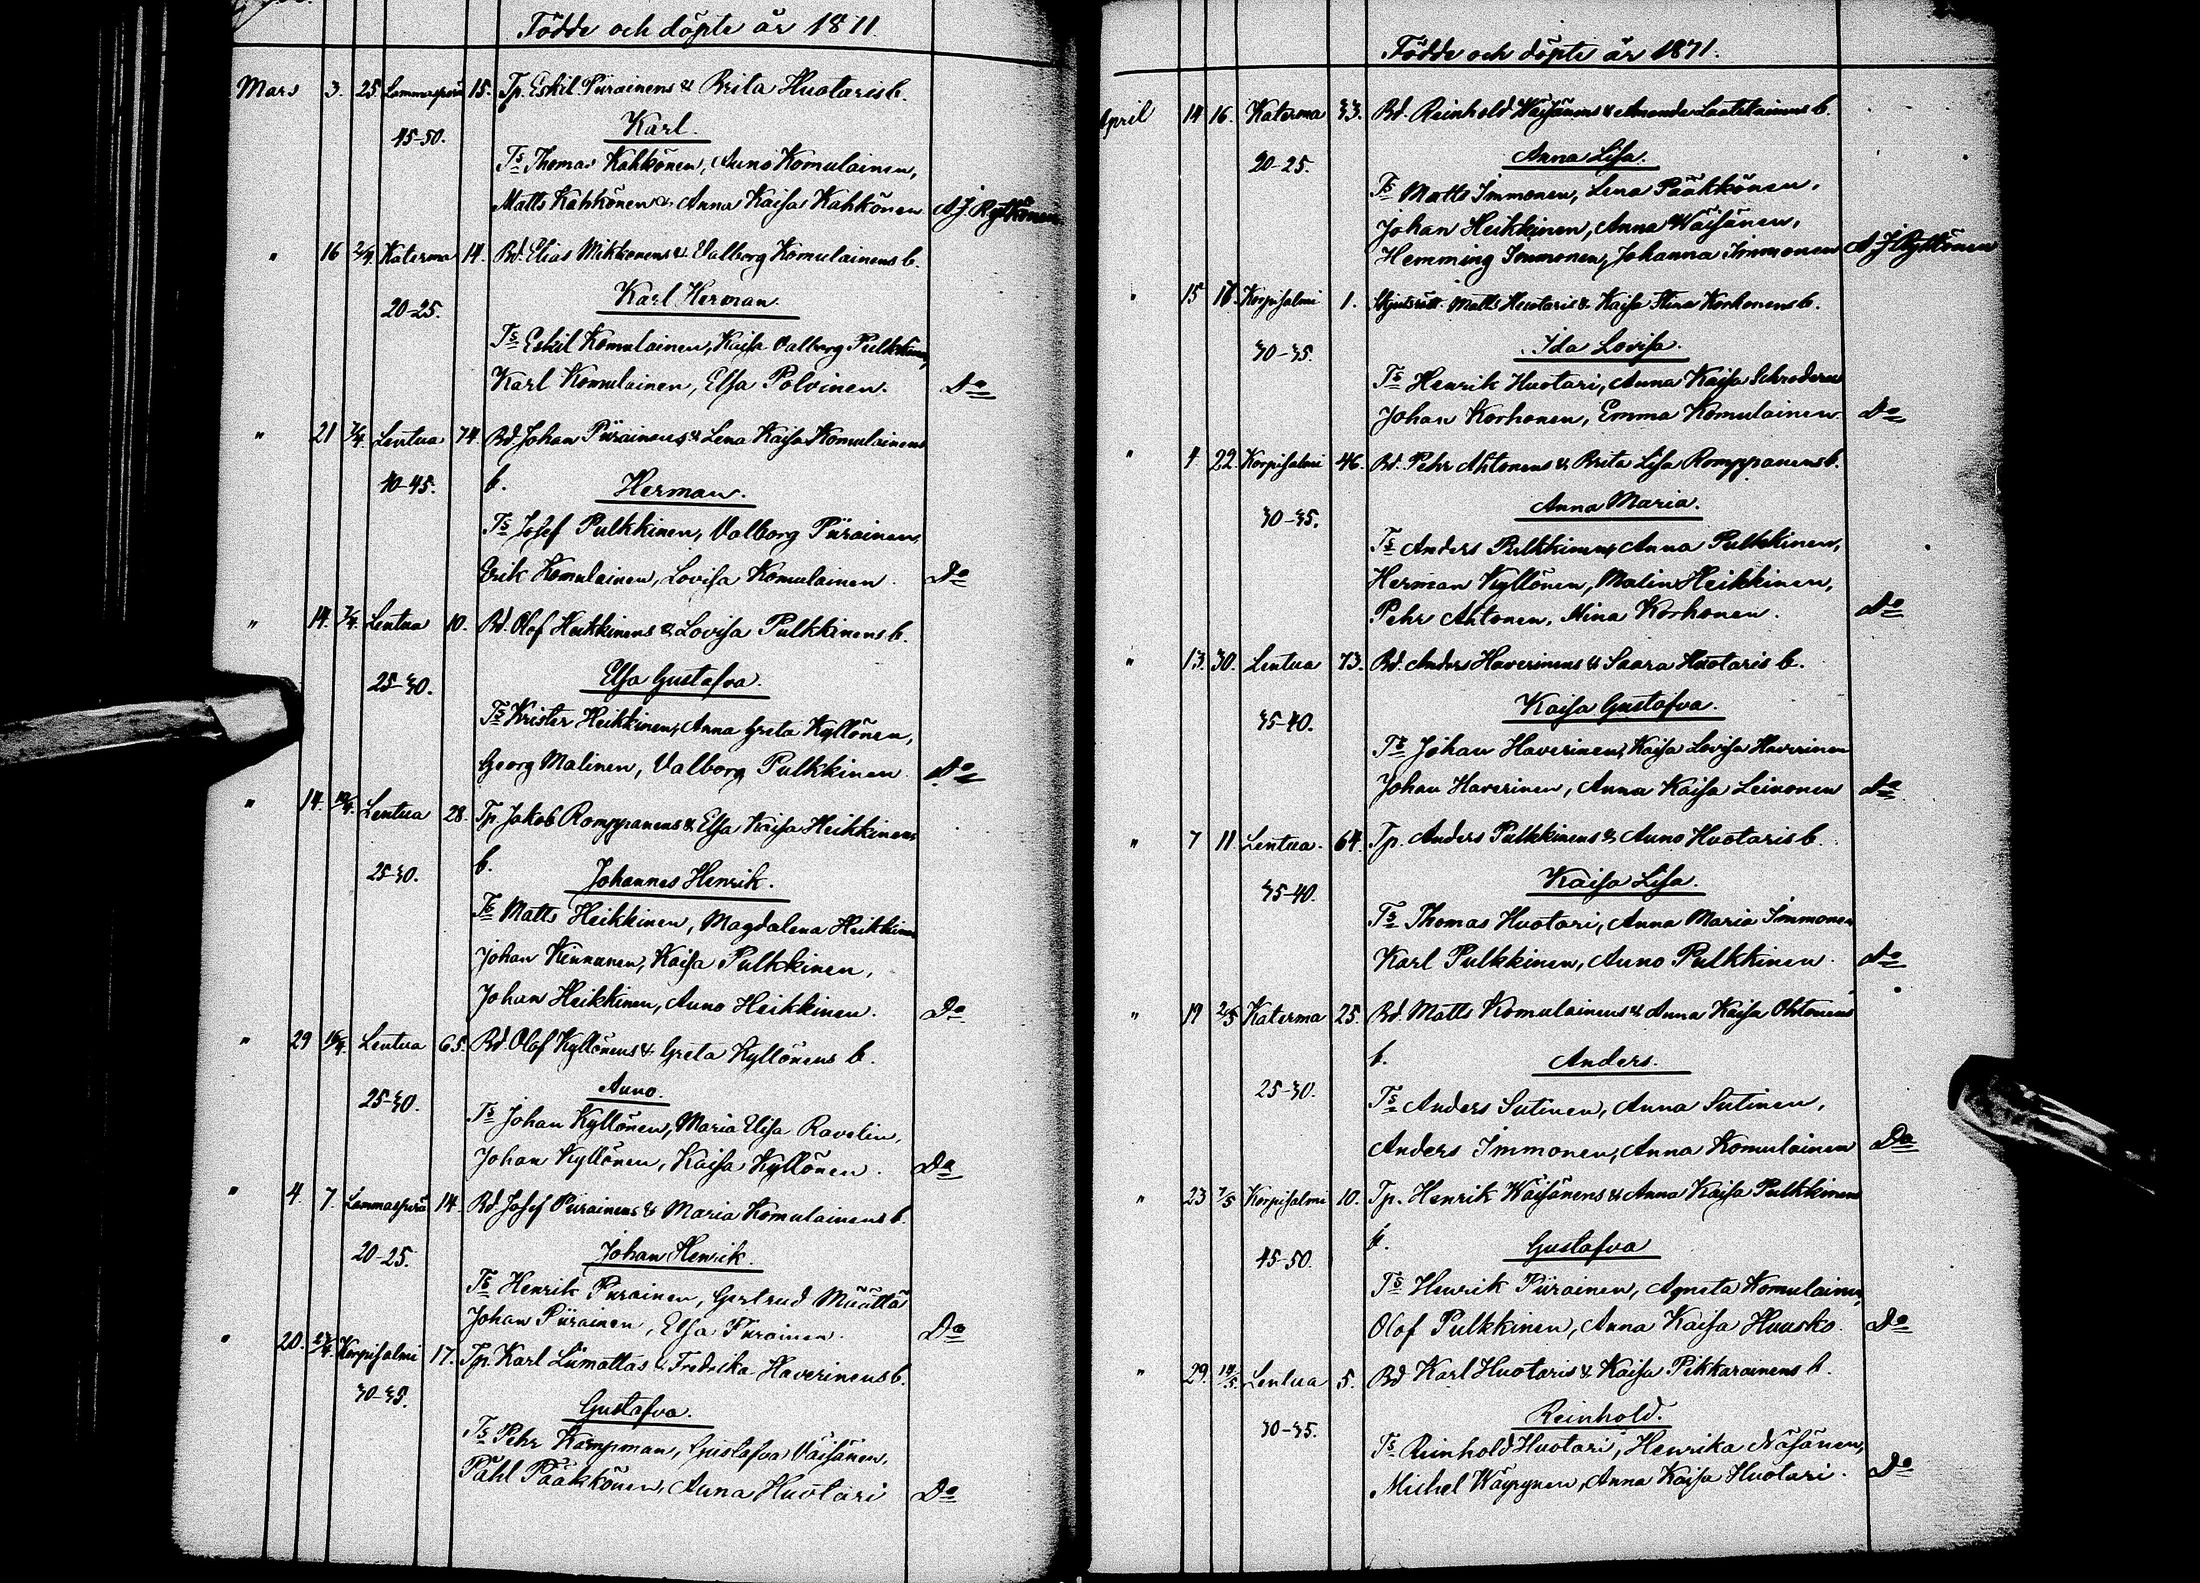 Födde och döpte år 1871.
Mars 3. 25 Lammasperä 15. Tp. Eskil Piirainens & Brita Huotaris b.
Karl.
45-50.
Ts Thomas Kähkönen, Auno Komulainen,
Matts Kähkönen & Anna Kaisa Kähkönen A J. Kyllönen
" 16 2/4 Katerma 14. Bd. Elias Mikkonens & Valborg Komulainens b.
20-25. Karl Herman
Ts Eskil Komulainen, Kaisa Valborg Pulkkinen,
Karl Komulainen, Elsa Polvinen. Do
" 21 7/4 Lentua 74. Bd. Johan Piirainens & Lena Kaisa Komulainens
40-45. b. Herman.
Ts Josef Pulkkinen, Valborg Piirainen,
Erik Komulainen, Lovisa Komulainen. Do
" 14. 7/4. Lentua 10. Bd. Olof Heikkinens & Lovisa Pulkkinens b.
25-30. Elsa Gustafva.
Ts Krister Heikkinen, Anna Greta Kyllönen,
Georg Malinen, Valborg Pulkkinen. Do
" 14. Lentua 28. Tp. Jakob Romppanens & Elsa Kaisa Heikkinens
25-30. b. Johannes Henrik.
Ts Matts Heikkinen, Magdalena Heikkinen
Johan Kinnunen, Kaisa Pulkkinen,
Johan Heikkinen, Auno Heikkinen. Do
" 29 Lentua 65. Bd. Olof Kyllönens & Greta Kyllönens b.
Auno.
25-30.
Ts Johan Kyllönen, Maria Elisa Ravelin,
Johan Kyllönen, Kaisa Kyllönen. Do
" 4. 7. Lammasperä 14. Bd. Josef Piirainens & Maria Komulainens b.
20-25. Johan Henrik.
Ts Henrik Piirainen, Gertrud Määttä
Johan Piirainen, Elsa Piirainen. Do
" 20. Korpisalmi 17. Tp. Karl Liimattas & Fredrika Haverinens b.
30-35. Gustafva.
Ts Pehr Kampman, Gustafva Väisänen,
Påhl Pääkkönen, Anna Huotari Do
Födde och döpte år 1871.
April 14 16. Katerma 33. Bd. Reinhold Wäisänens & Amanda Laatikainens b.
20-25. Anna Lisa.
Ts Matts Immonen, Lena Pääkkönen,
Johan Heikkinen, Anna Wäisänen,
Hemming Immonen, Johanna Immonen A J Kyllönen
" 15 Korpisalmi 1. Matts Huotaris & Kaisa Stina Korhonens b.
30-35. Ida Lovisa.
Ts Henrik Huotari, Anna Kaisa Schroderus
Johan Korhonen, Emma Komulainen. Do
" 4 22 Korpisalmi 46. Bd. Pehr Ahtonens & Brita Lisa Romppanens b.
30-35. Anna Maria.
Ts Anders Pulkkinen, Anna Pulkkinen,
Herman Kyllönen, Malin Heikkinen,
Pehr Ahtonen, Stina Korhonen. Do
" 13. 30. Lentua 73. Bd. Anders Haverinens & Saara Huotaris b.
35-40. Kaisa Gustafva.
Ts Johan Haverinen, Kaisa Lovisa Haverinen
Johan Haverinen, Anna Kaisa Leinonen Do
" 7 11. Lentua. 64. Tp. Anders Pulkkinens & Auno Huotaris b.
35-40. Kaisa Lisa.
Ts Thomas Huotari, Anna Maria Immonen
Karl Pulkkinen, Auno Pulkkinen. Do
" 19 2/5 Katerma 25. Bd. Matts Komulainens & Anna Kaisa Ohtonens
b. Anders.
25-30.
Ts Anders Sutinen, Anna Sutinen,
Anders Immonen, Anna Komulainen Do
" 23 7/5 Korpisalmi 10. Tp. Henrik Wäisänens & Anna Kaisa Pulkkinens
45-50. b. Gustafva
Ts Henrik Piirainen, Agneta Komulainen,
Olof Pulkkinen, Anna Kaisa Huusko. Do
" 29. 14/5 Lentua 5. Bd Karl Huotaris & Kaisa Pikkarainens b.
30-35. Reinhold.
Ts Reinhold Huotari, Henrika Näsänen,
Michel Wäyrynen, Anna Kaisa Huotari. Do